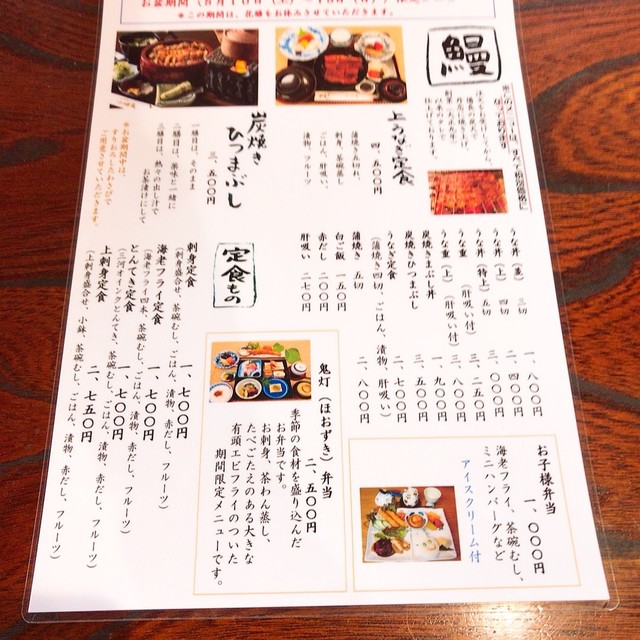 鰻
上うなぎ定食
四、五〇〇円
蒲焼き五切れ、
刺身、茶碗蒸し
ごはん、肝吸い、
漬物、フルーツ
炭焼き
ひつまぶし
三、五〇〇円
一膳目は、そのまま
二膳目は、薬味と一緒に
三膳目は、熱々の出し汁で
お茶漬けにして
※お盆期間中は、
すりおろしたわさびで
ご用意させていただきます。
うな丼（並） 三切 一、八〇〇円
うな丼（上） 四切 二、四〇〇円
うな丼（特上）五切 三、〇〇〇円
うな重（肝吸い付） 三、二五〇円
うな重（上）（肝吸い付） 三、八〇〇円
炭焼きまぶし丼 一、九〇〇円
炭焼きひつまぶし 三、五〇〇円
うなぎ定食 二、七〇〇円
（蒲焼き四切、ごはん、漬物、肝吸い）
蒲焼き 五切 二、八〇〇円
白ご飯 一五〇円
赤だし 二〇〇円
肝吸い 二七〇円
定食もの
刺身定食 一、七〇〇円
（刺身盛合せ、茶碗むし、ごはん、漬物、赤だし、フルーツ）
海老フライ定食 一、七〇〇円
（海老フライ四本、茶碗むし、ごはん、漬物、赤だし、フルーツ）
とんてき定食 一、七〇〇円
（三河オインクとんてき、茶碗むし、ごはん、漬物、赤だし、フルーツ）
上刺身定食 二、七五〇円
（上刺身盛合せ、小鉢、茶碗むし、ごはん、漬物、赤だし、フルーツ）
お子様弁当
一、〇〇〇円
海老フライ、茶碗むし、
ミニハンバーグなど
アイスクリーム付
鬼灯（ほおずき）弁当
二、五〇〇円
季節の食材を盛り込んだ
お弁当です。
お刺身、茶わん蒸し、
たべごたえのある大きな
有頭エビフライのついた
期間限定メニューです。